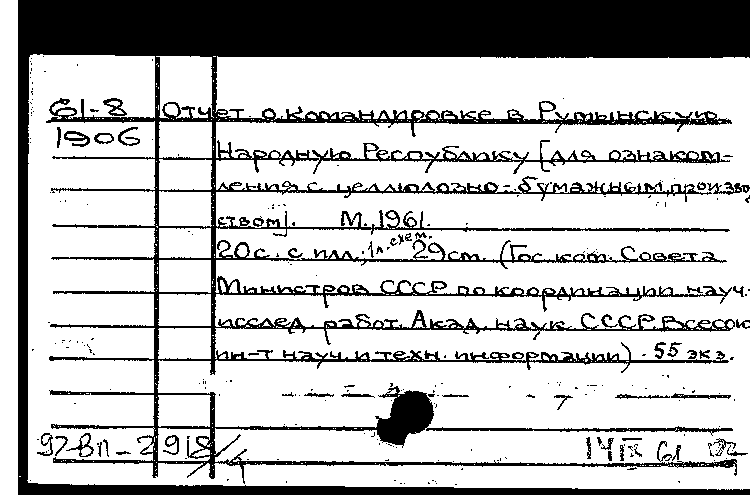 61-8 Отчет о командировке в Румынскую
1906
Народную Республику [для ознаком-
ления с целлюлозно-бумажным произво
ством]. М., 1961.
20с. с илл.; 1л. схем. 29см. (Гос. ком. Совета
Министров СССР по координации науч.-
исслед. работ. Акад. наук СССР. Всесоюз
ин-т науч. и техн. информации). 55 экз.
92-ВП-2918/1 14 IX 61